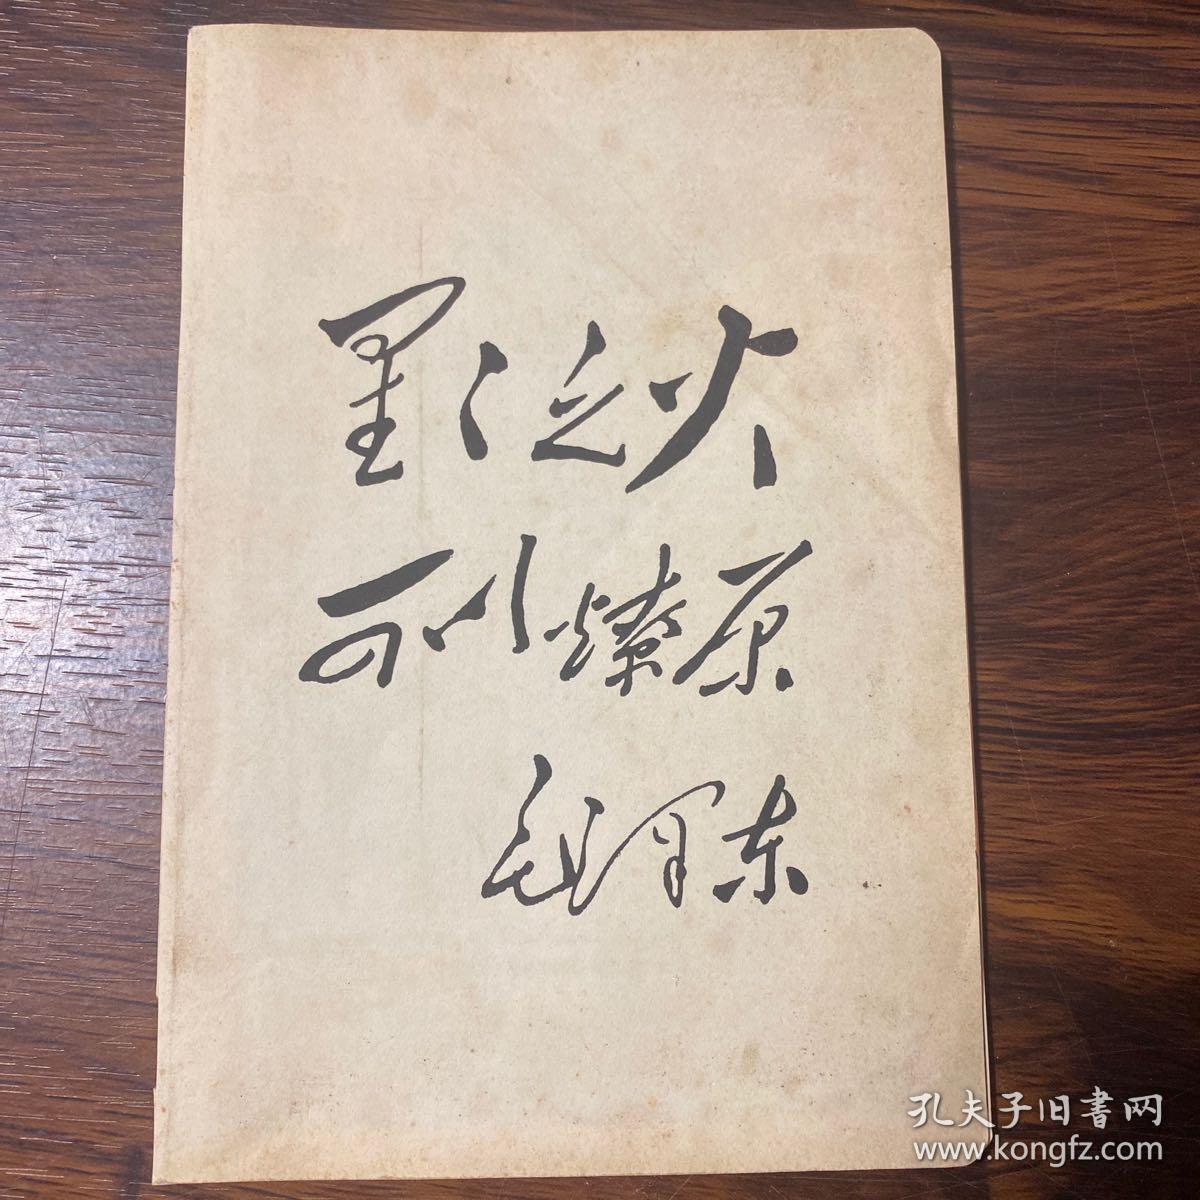 星〻之火
可以燎原
毛泽东
孔夫子旧書网
www.kongfz.com